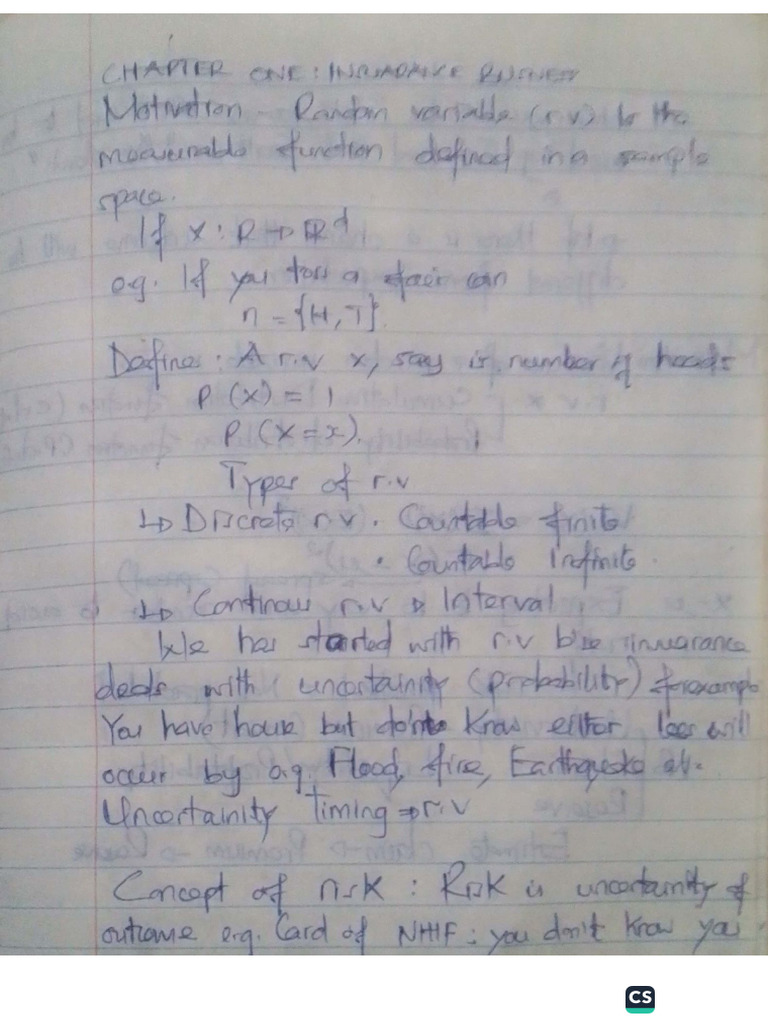 CHAPTER ONE : INSURANCE BUSINESS
Motivation - Random variable (r.v) is the
measurable function defined in a sample
space.
If x : R → ℝ^d
e.g. If you toss a fair coin
n = {H, T}
Define : A r.v x, say is number of heads
P(x) = 1
P(X = x).
Types of r.v
↳ Discrete r.v • Countable finite
• Countable Infinite
↳ Continous r.v → Interval
We has started with r.v b'se insurance
deals with uncertainity (probability) forexample
You have house but don't know either loss will
occur by e.g. Flood, fire, Earthquake etc.
Uncertainity Timing ⇒ r.v
Concept of risk : Risk is uncertainity of
outcome e.g. Card of NHIF : you don't know you
CS